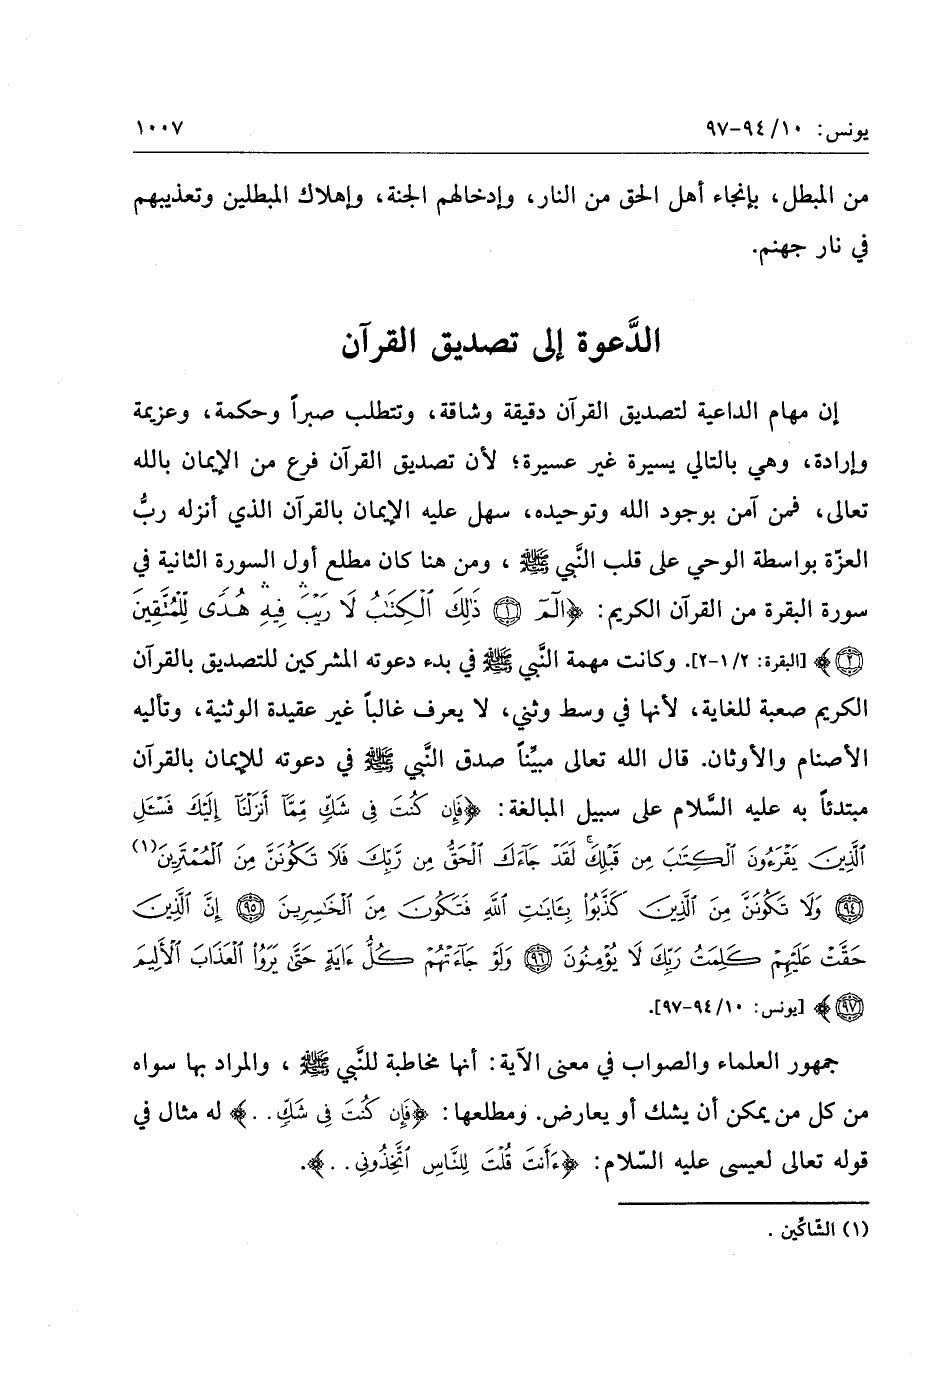 يونس: ١٠/ ٩٤-٩٧ ١٠٠٧
من المبطل، بإنجاء أهل الحق من النار، وإدخالهم الجنة، وإهلاك المبطلين وتعذيبهم
في نار جهنم.
الدَّعوة إلى تصديق القرآن
إن مهام الداعية لتصديق القرآن دقيقة وشاقة، وتتطلب صبراً وحكمة، وعزيمة
وإرادة، وهي بالتالي يسيرة غير عسيرة؛ لأن تصديق القرآن فرع من الإيمان بالله
تعالى، فمن آمن بوجود الله وتوحيده، سهل عليه الإيمان بالقرآن الذي أنزله ربُّ
العزّة بواسطة الوحي على قلب النَّبي ﷺ ، ومن هنا كان مطلع أول السورة الثانية في
سورة البقرة من القرآن الكريم: ﴿الٓمٓ ۝١ ذَٰلِكَ ٱلْكِتَٰبُ لَا رَيْبَ ۛ فِيهِ ۛ هُدًى لِّلْمُتَّقِينَ
۝٢﴾ [البقرة: ٢/ ١-٢]. وكانت مهمة النَّبي ﷺ في بدء دعوته المشركين للتصديق بالقرآن
الكريم صعبة للغاية، لأنها في وسط وثني، لا يعرف غالباً غير عقيدة الوثنية، وتأليه
الأصنام والأوثان. قال الله تعالى مبيِّناً صدق النَّبي ﷺ في دعوته للإيمان بالقرآن
مبتدئاً به عليه السَّلام على سبيل المبالغة: ﴿فَإِن كُنتَ فِى شَكٍّ مِّمَّآ أَنزَلْنَآ إِلَيْكَ فَسْـَٔلِ
ٱلَّذِينَ يَقْرَءُونَ ٱلْكِتَٰبَ مِن قَبْلِكَ ۚ لَقَدْ جَآءَكَ ٱلْحَقُّ مِن رَّبِّكَ فَلَا تَكُونَنَّ مِنَ ٱلْمُمْتَرِينَ(١)
۝٩٤ وَلَا تَكُونَنَّ مِنَ ٱلَّذِينَ كَذَّبُوا۟ بِـَٔايَٰتِ ٱللَّهِ فَتَكُونَ مِنَ ٱلْخَٰسِرِينَ ۝٩٥ إِنَّ ٱلَّذِينَ
حَقَّتْ عَلَيْهِمْ كَلِمَتُ رَبِّكَ لَا يُؤْمِنُونَ ۝٩٦ وَلَوْ جَآءَتْهُمْ كُلُّ ءَايَةٍ حَتَّىٰ يَرَوُا۟ ٱلْعَذَابَ ٱلْأَلِيمَ
۝٩٧﴾ [يونس: ١٠/ ٩٤-٩٧].
جمهور العلماء والصواب في معنى الآية: أنها مخاطبة للنَّبي ﷺ ، والمراد بها سواه
من كل من يمكن أن يشك أو يعارض. ومطلعها: ﴿فَإِن كُنتَ فِى شَكٍّ..﴾ له مثال في
قوله تعالى لعيسى عليه السّلام: ﴿ءَأَنتَ قُلْتَ لِلنَّاسِ ٱتَّخِذُونِى..﴾.
(١) الشّاكِّين .